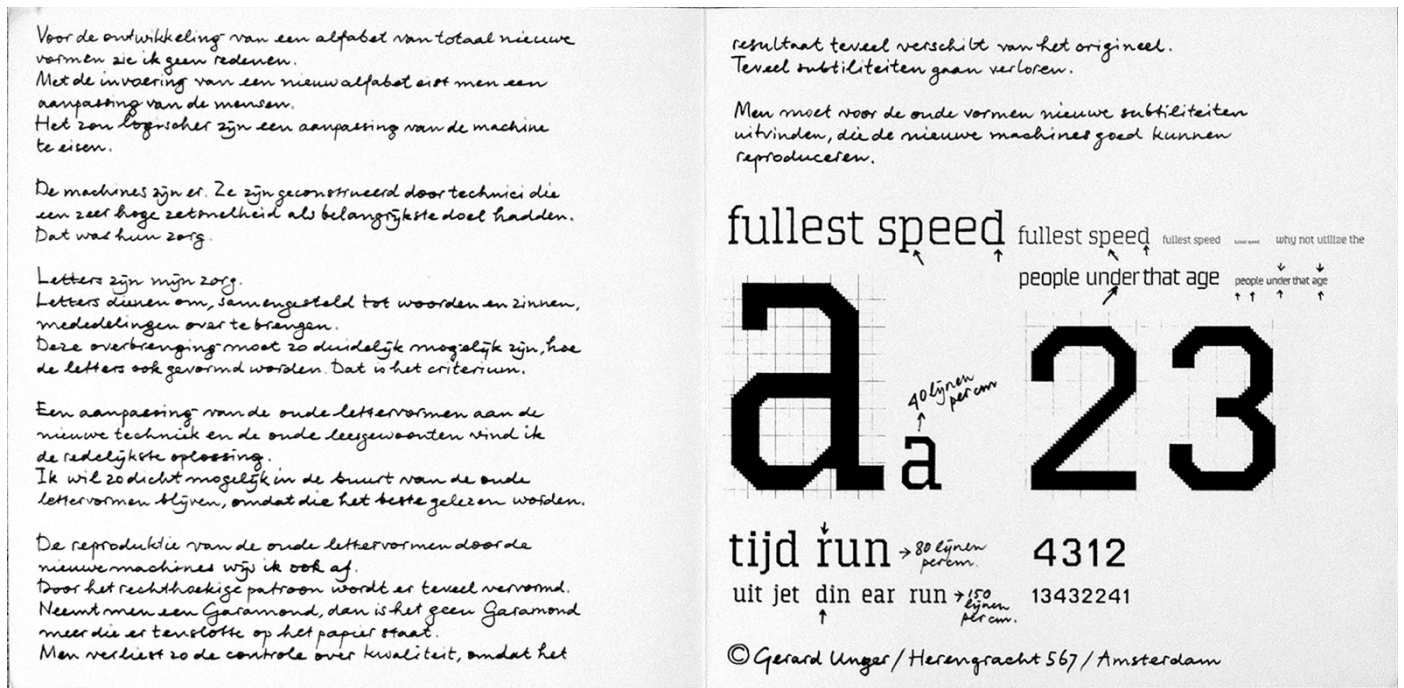 Voor de ontwikkeling van een alfabet van totaal nieuwe
vormen zie ik geen redenen.
Met de invoering van een nieuw alfabet eist men een
aanpassing van de mensen.
Het zou logischer zijn een aanpassing van de machine
te eisen.
De machines zijn er. Ze zijn geconstrueerd door technici die
een zeer hoge zetsnelheid als belangrijkste doel hadden.
Dat was hun zorg.
Letters zijn mijn zorg.
Letters dienen om, samengesteld tot woorden en zinnen,
mededelingen over te brengen.
Deze overbrenging moet zo duidelijk mogelijk zijn, hoe
de letters ook gevormd worden. Dat is het criterium.
Een aanpassing van de oude lettervormen aan de
nieuwe techniek en de oude leesgewoonten vind ik
de redelijkste oplossing.
Ik wil zo dicht mogelijk in de buurt van de oude
lettervormen blijven, omdat die het beste gelezen worden.
De reproduktie van de oude lettervormen door de
nieuwe machines wijs ik ook af.
Door het rechthoekige patroon wordt er teveel vervormd.
Neemt men een Garamond, dan is het geen Garamond
meer die er tenslotte op het papier staat.
Men verliest zo de controle over kwaliteit, omdat het
resultaat teveel verschilt van het origineel.
Teveel subtiliteiten gaan verloren.
Men moet voor de oude vormen nieuwe subtiliteiten
uitvinden, die de nieuwe machines goed kunnen
reproduceren.
fullest speed fullest speed fullest speed fullest speed why not utilize the
people under that age people under that age
a a 40 lijnen per cm 23
tijd run → 80 lijnen per cm. 4312
uit jet din ear run → 150 lijnen per cm. 13432241
© Gerard Unger / Herengracht 567 / Amsterdam